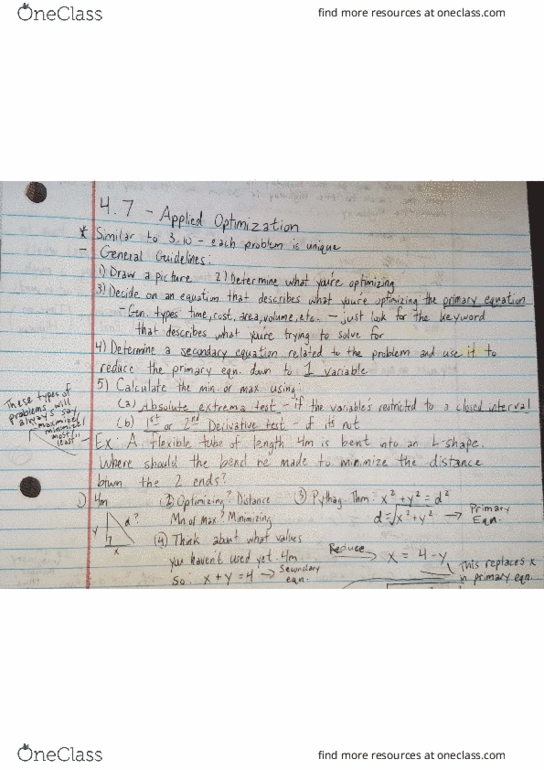 OneClass
find more resources at oneclass.com
4.7 - Applied Optimization
* Similar to 3.10 - each problem is unique
- General Guidelines:
1) Draw a picture 2) Determine what you're optimizing
3) Decide on an equation that describes what you're optimizing the primary equation
- Gen. types time, cost, area, volume, etc. - just look for the keyword
that describes what you're trying to solve for
4) Determine a secondary equation related to the problem and use it to
reduce the primary eqn. down to 1 variable
5) Calculate the min or max using:
(a) Absolute extrema test - if the variable's restricted to a closed interval
(b) 1st or 2nd Derivative test - if its not
These types of
problems will
always say
maximize/
minimize/
most/
least
- Ex: A flexible tube of length 4m is bent into an L-shape.
Where should the bend be made to minimize the distance
btwn the 2 ends?
1) 4m
y d?
x
(2) Optimizing? Distance
Min or max? Minimizing
(3) Pythag Thm: x² + y² = d²
d = √x² + y² → Primary Eqn.
(4) Think about what values
you haven't used yet. 4m
So: x + y = 4 → Secondary eqn.
Reduce → x = 4 - y
This replaces x
in primary eqn.
OneClass
find more resources at oneclass.com